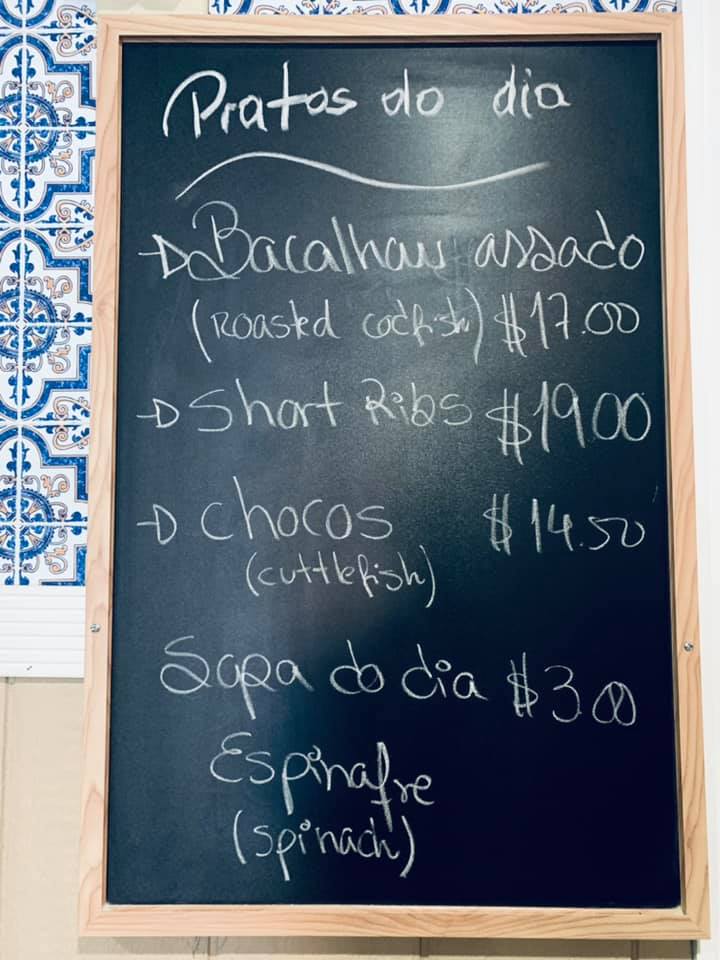 Pratos do dia
Bacalhau assado
(roasted codfish) $17.00
Short Ribs $19.00
Chocos $14.50
(cuttlefish)
Sopa do dia $3.00
Espinafre
(spinach)